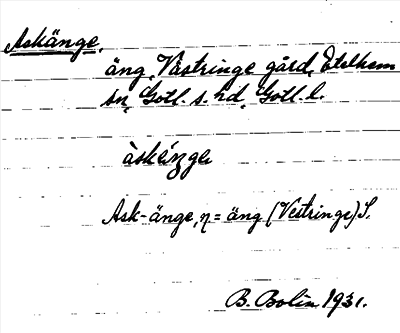 Askänge,
äng, Västringe gård, Etelhem
sn, Gotl. s. hd, Gotl. l.
àskéŋge
Ask-änge, η = äng (Vestringe) S.
B. Bolin 1931.